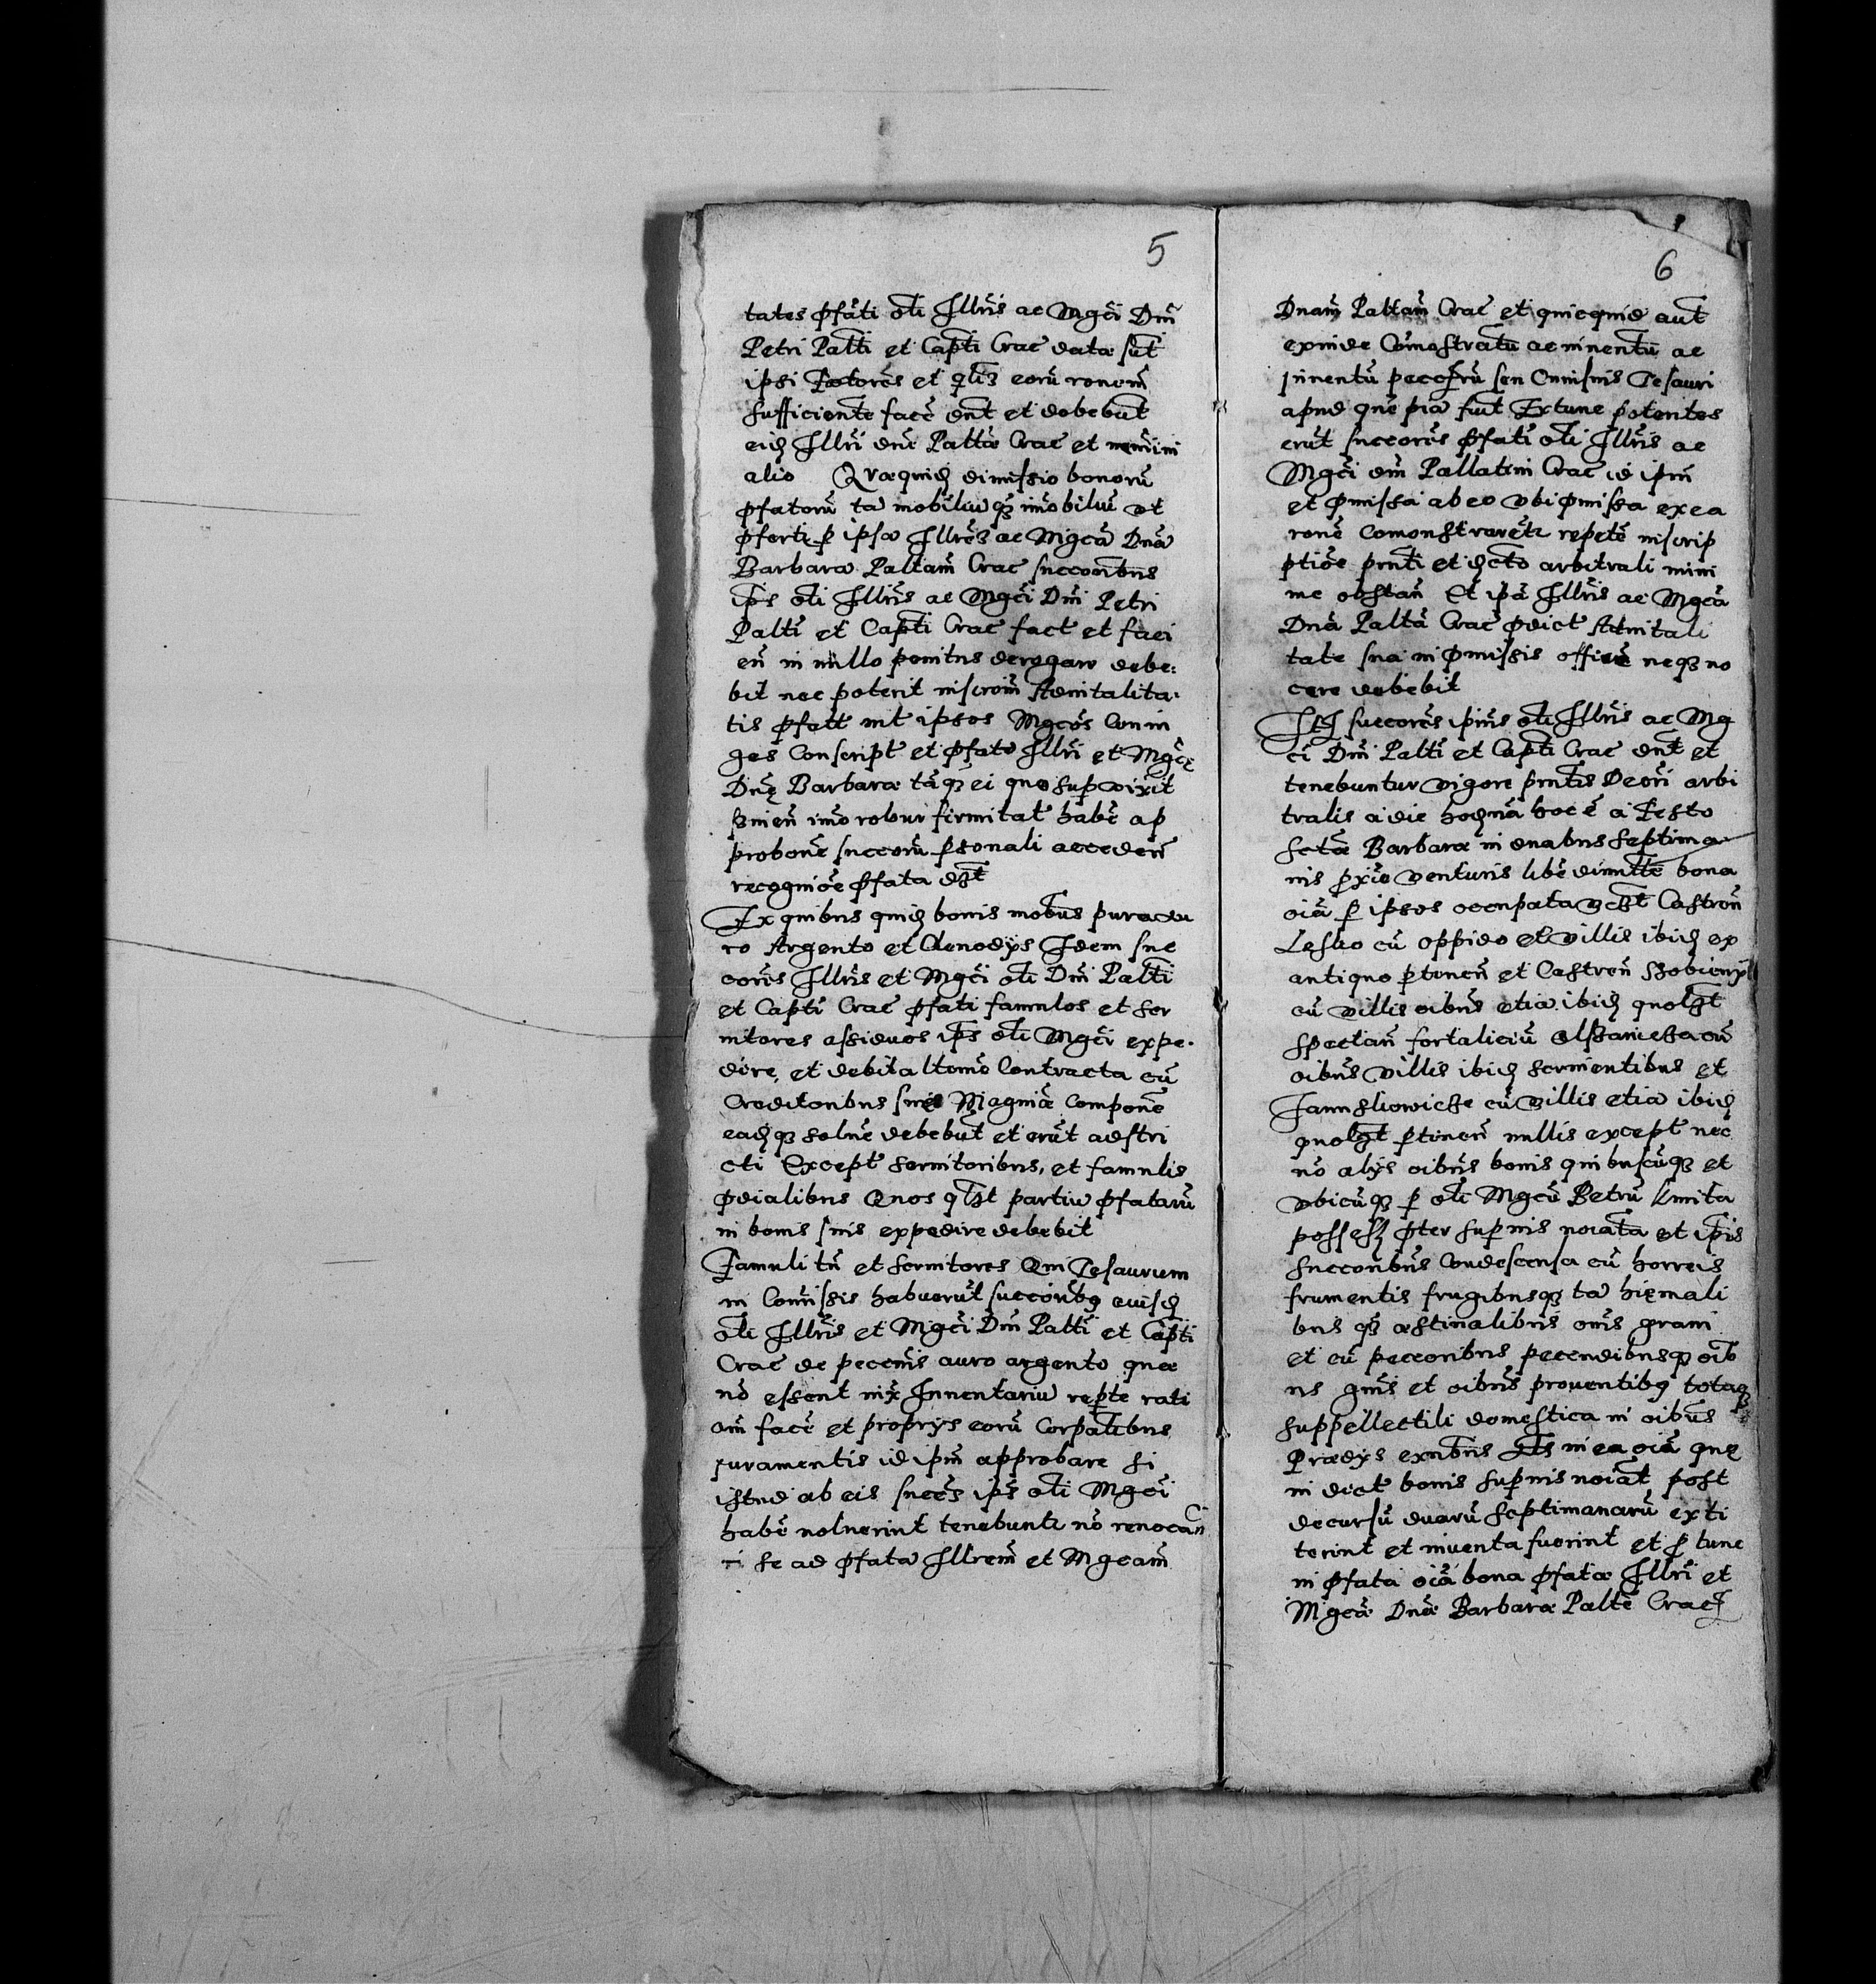 5
tates pfati oti Jllris ac Mgci Dni
Petri Palti et Capti Crac data sut
ipsi Factores et qlis eoru ronem
sufficiente face dnt et debebut
eid Jllri dne Palta Crac et nemini
alio Quaequid dimissio bonoru
pfatoru ta mobiliu q imobiliu ut
pfertr p ipsa Jllre ac Mgca Dna
Barbara Paltam Crac succoribus
ips oti Jllris ac Mgci Dni Petri
Palti et Capti Crac fact et faci
en in nullo penitus derogare debe:
bit nec poterit inscrom Aduitalita:
tis pfatt int ipsos Mgcos Coniu
ges Conscript et pfate Jllri et Mgce
Dnę Barbara taq ei que supvixit
 imo robur firmitat habe ap
probone succoru psonali acceden
recognioe pfata dt
Ex quibus quid bonis mobus pura au
ro Argento et Clenodys Jdem suc
cores Jllris et Mgci oti Dni Palti
et Capti Crac pfati famulos et ser
uitores assiduos ips oti Mgci expe.
dire, et debita ltomo Contracta cu
Creditoribus siue Magnia compone
eadq solue debebut et erut adstri
cti Except seruitoribus, et famulis
pdialibus Quos qlt partiu pfataru
in bonis suis expedire debebit
Famuli tn et seruitores Qui Tesaurum
in Comissis habuerut succoribq eiusd
oti Jllris et Mgci Dni Palti et Capti
Crac de pecenis auro argento quae
no essent iux Jnuentariu repte rati
om face et proprys eoru Corpalibus
juramentis id ipm approbare si
istud ab eis succs ips oti Mgci
habe noluerint tenebunt no reuocan
ti se ad pfata Jllrem et Mgcam
6
Dnam Paltam Crac et quicquid aut
exinde Comostratu ac inuentu ac
jnuentu pecoru seu Cuiusuis Tesauri
apud que pia fuit Extunc potentes
erut succores pfati oti Jllris ac
Mgci dni Pallatini Crac id ipm
et pmissa ab eo ubi pmissa ex ea
rone comonstraretr repete inscrip
ptioe pnti et dcto arbitrali mini
me obstan Et ipa Jllris ac Mgca
Dna Palta Crac pdict Aduitali
tate sua in pmissis officere neq no
cere debebit
Jt succores ipius oti Jllris ac Mg
ci Dni Palti et Capti Crac dnt et
tenebuntur vigore pntis Decri arbi
tralis a die hodna hoc e a Festo
Scta Barbara in duabus septima
nis pxie venturis libe dimitte bona
oia p ipsos occupata vt Castron
Lesko cu oppido et villis ibid ex
antiquo ptinen et Castron Szobieny
cu villis oibus etia ibid quolt
spectan fortaliciu Olszanicza cu
oibus villis ibid seruientibus et
Jannslowicze cu villis etia ibid
quolt ptinen nullis except nec
no alys oibus bonis quibuscuq et
ubicuq p oti Mgcu Petru Kmita
possess pter supius noiata et ipis
succoribus condescensa cu horreis
frumentis frugibusq ta hiemali
bus q aestiualibus omis grani
et cu peccoribus pecudibusq oib
us gnis et oibus prouentibq totaq
suppellectili domestica in oibus
Praedys exntibus in ea oia quę
in dict bonis supius noiat post
decursu duaru septimanaru exti
terint et inuenta fuerint et p tunc
in pfata oia bona pfata Jllri et
Mgca Dna Barbara Palte Crac